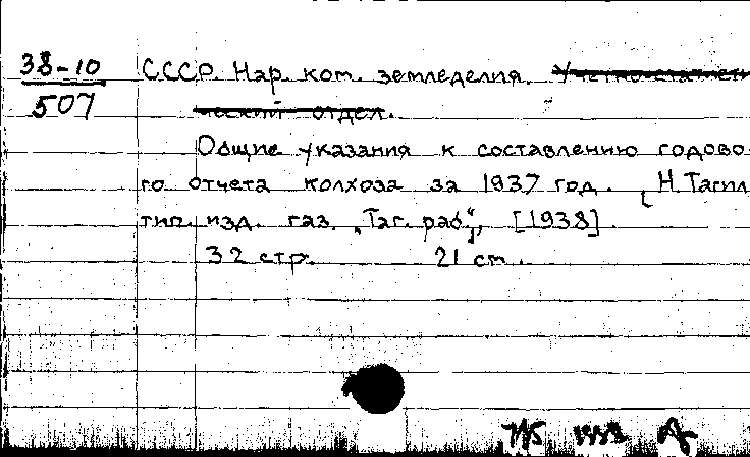 38-10 СССР. Нар. ком. земледелия. Учетно-статисти
507 ческий отдел.
Общие указания к составлению годово-
го отчета колхоза за 1937 год. [Н. Тагил
тип. изд. газ. „Таг. раб.“, [1938].
32 стр. 21 см.